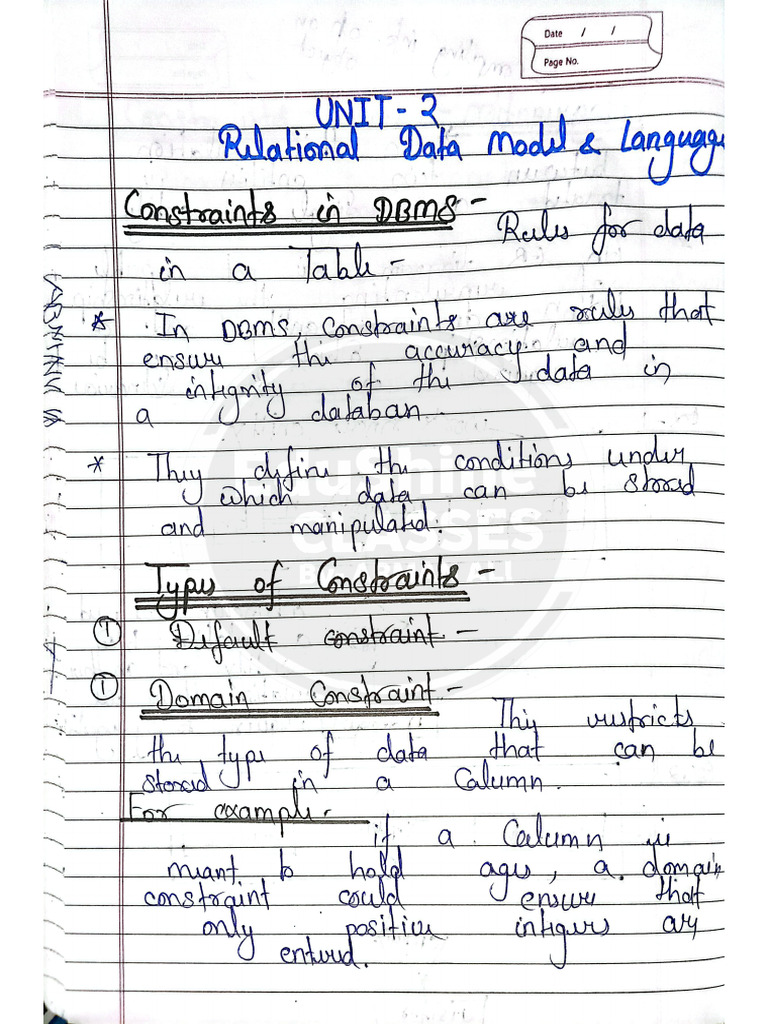 Date / /
Page No.
UNIT-2
Relational Data Model & Language
Constraints in DBMS -
Rules for data
in a Table -
* In DBMS, constraints are rules that
ensure the accuracy and
integrity of the data in
a database.
* They define the conditions under
which data can be stored
and manipulated.
Types of Constraints -
① Default constraint -
① Domain Constraint -
This restricts
the type of data that can be
stored in a Column.
For example -
if a Column is
meant to hold ages, a domain
constraint could ensure that
only positive integers are
entered.
EduShine
CLASSES